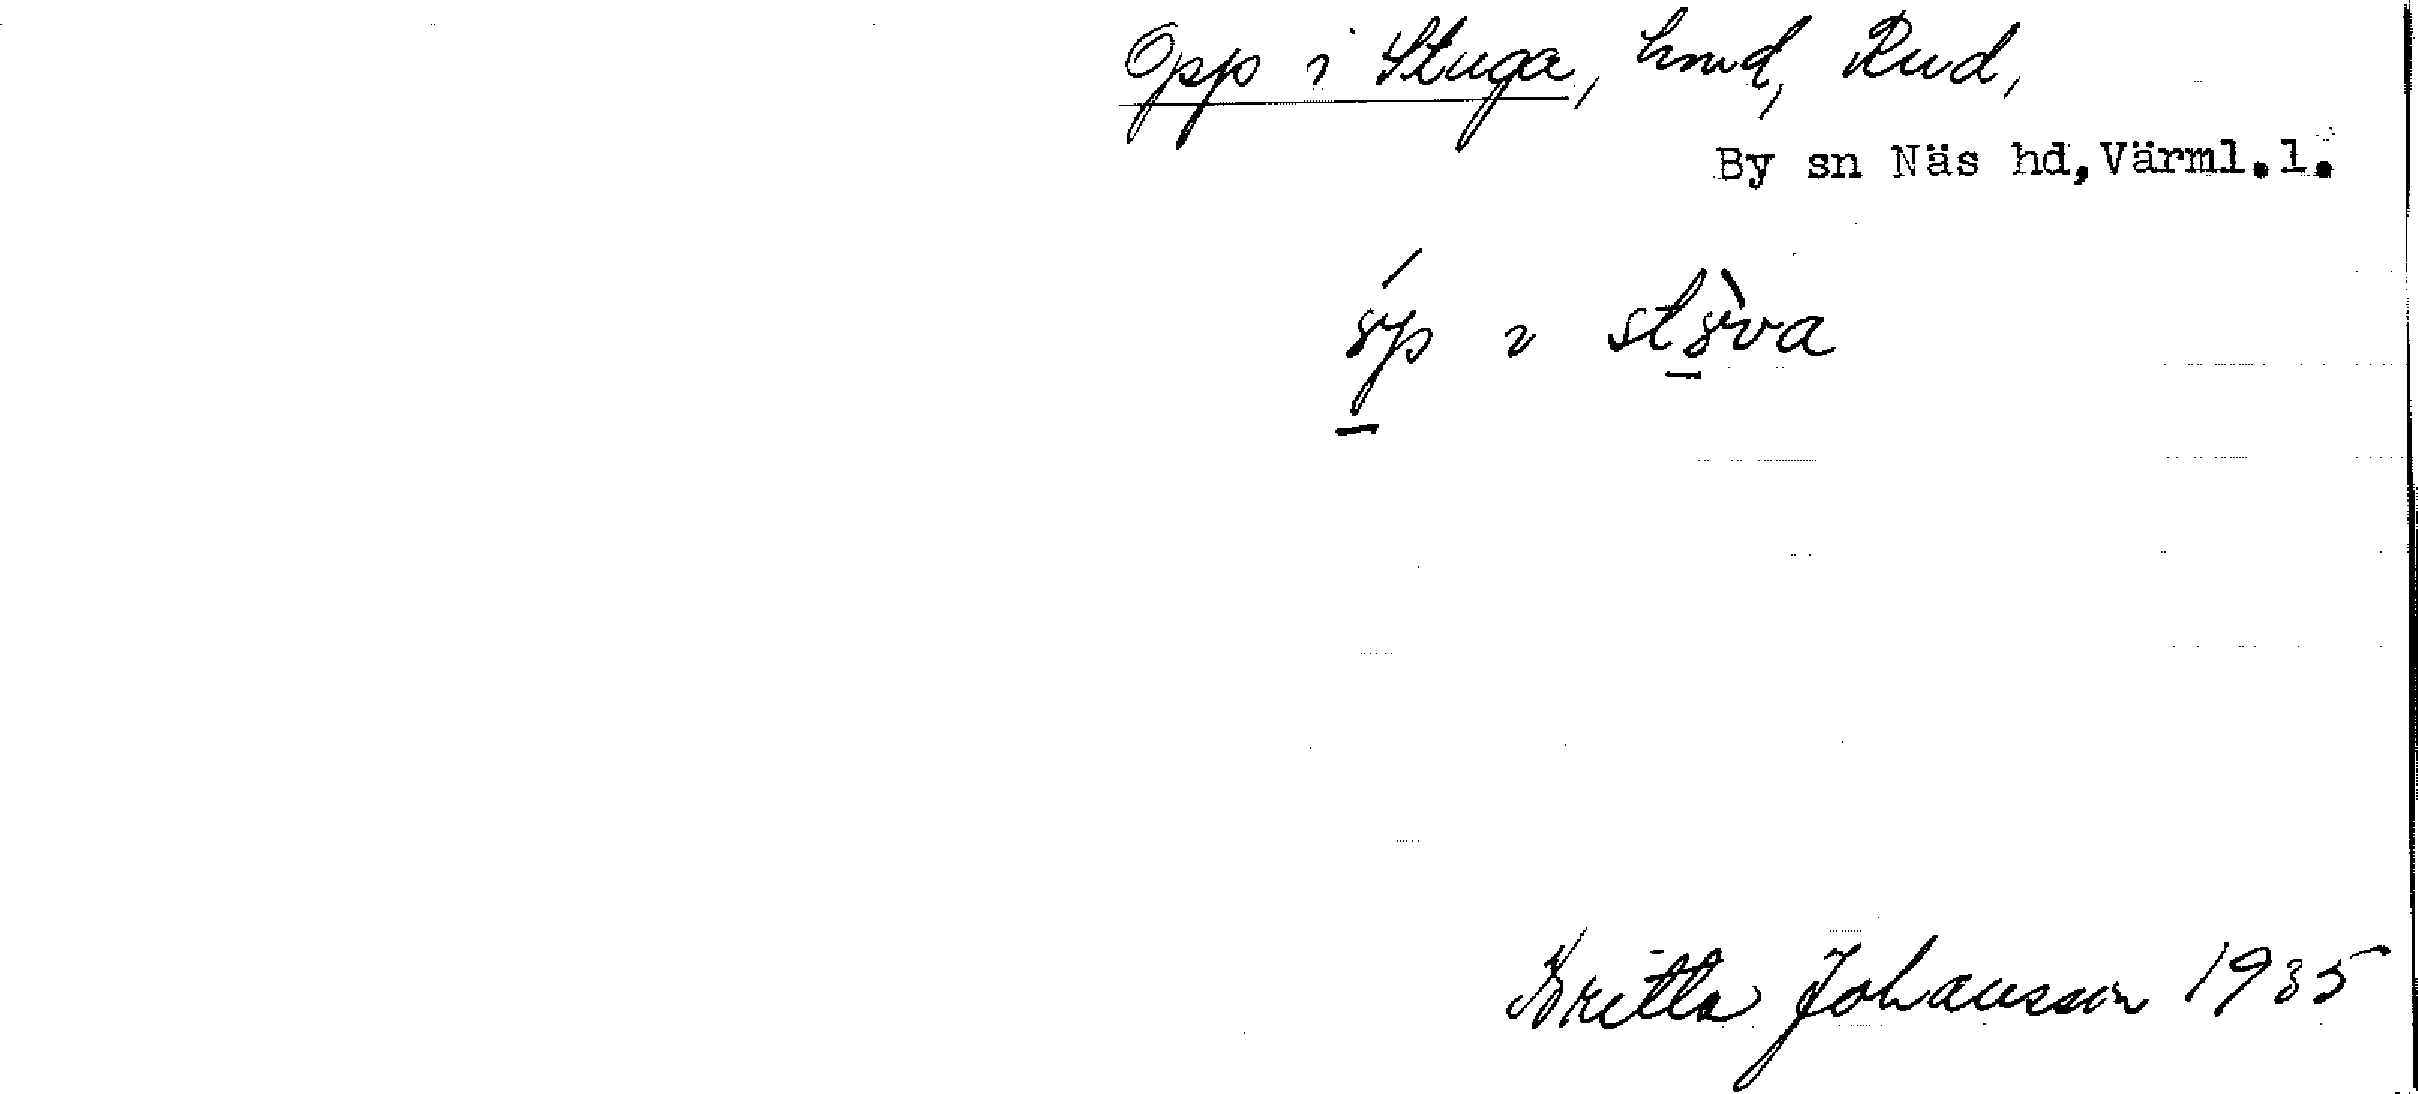 Opp i Stuga, hmd, Rud,
By sn Näs hd, Värml.l.
i
Britta Johansson 1935